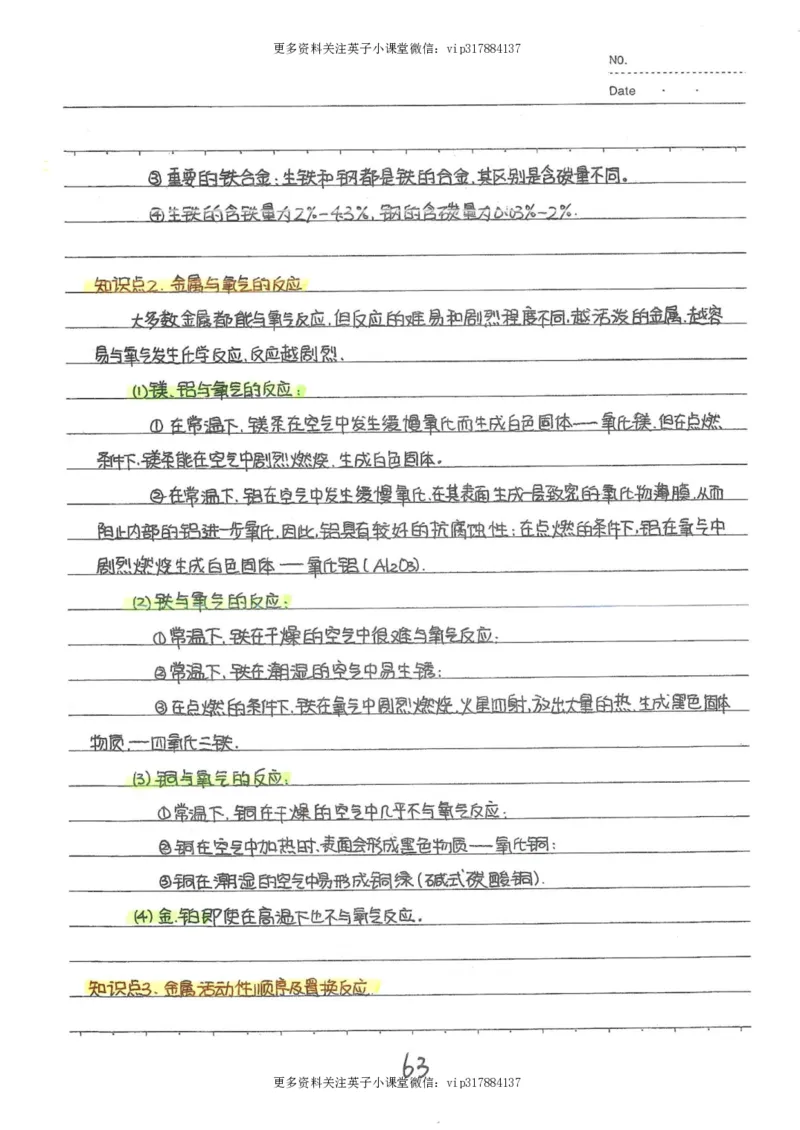 更多资料关注英子小课堂微信：vip317884137
NO.
Date · ·
③重要的铁合金：生铁和钢都是铁的合金，其区别是含碳量不同。
④生铁的含铁量为2%-4.3%，钢的含碳量为0.03%-2%.
知识点2．金属与氧气的反应
大多数金属都能与氧气反应，但反应的难易和剧烈程度不同，越活泼的金属，越容
易与氧气发生化学反应，反应越剧烈．
(1)镁、铝与氧气的反应：
①在常温下，镁条在空气中发生缓慢氧化而生成白色固体——氧化镁．但在点燃
条件下，镁条能在空气中剧烈燃烧，生成白色固体。
②在常温下，铝在空气中发生缓慢氧化，在其表面生成一层致密的氧化物薄膜，从而
阻止内部的铝进一步氧化，因此，铝具有较好的抗腐蚀性；在点燃的条件下，铝在氧气中
剧烈燃烧生成白色固体——氧化铝(Al2O3).
(2)铁与氧气的反应：
①常温下，铁在干燥的空气中很难与氧气反应；
②常温下，铁在潮湿的空气中易生锈；
③在点燃的条件下，铁在氧气中剧烈燃烧，火星四射，放出大量的热，生成黑色固体
物质，——四氧化三铁．
(3)铜与氧气的反应：
①常温下，铜在干燥的空气中几乎不与氧气反应；
②铜在空气中加热时，表面会形成黑色物质——氧化铜；
③铜在潮湿的空气中易形成铜绿(碱式碳酸铜).
(4)金、铂即使在高温下也不与氧气反应。
知识点3．金属活动性顺序及置换反应
63
更多资料关注英子小课堂微信：vip317884137